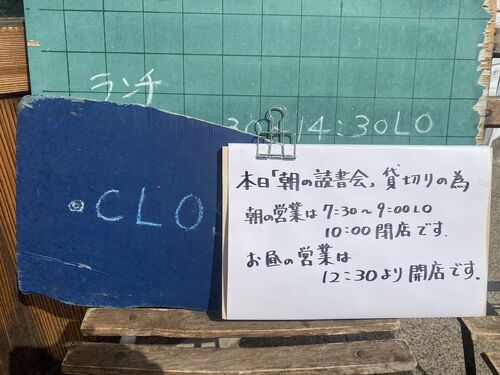 ランチ
14:30LO
CLO
本日「朝の読書会」貸切りの為
朝の営業は 7:30~9:00LO
10:00 閉店です.
お昼の営業は
12:30より開店です.